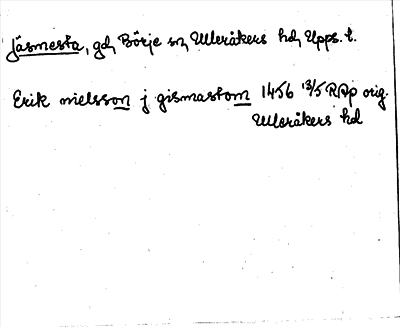 Jäsmesta, gd, Börje sn, Ulleråkers hd, Upps. l.
Erik nielsson j gismastom 1456 13/5 RAp orig.
Ulleråkers hd